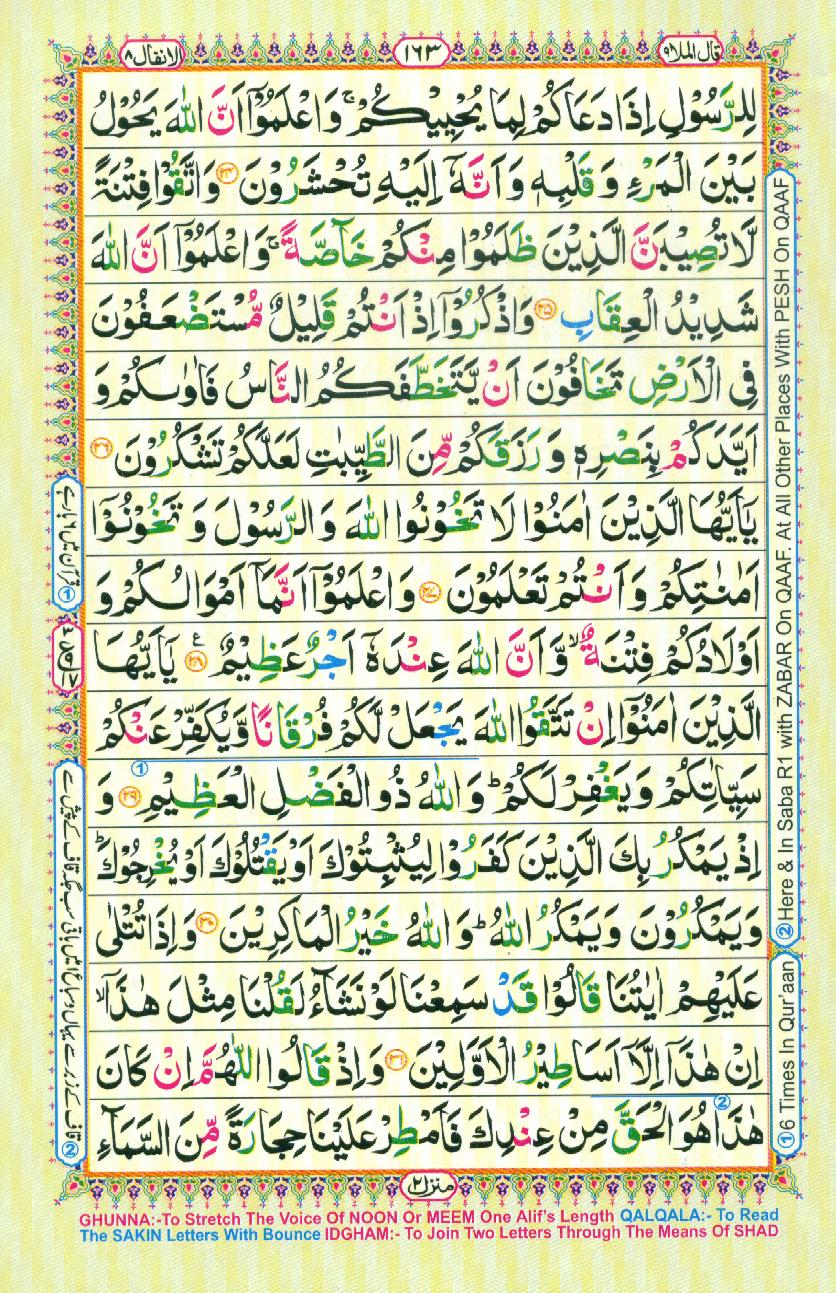 الانفال ٨
١٦٣
قال الملا ٩
لِلرَّسُوْلِ اِذَا دَعَاكُمْ لِمَا يُحْيِيْكُمْ ۚ وَاعْلَمُوْۤا اَنَّ اللّٰهَ يَحُوْلُ
بَيْنَ الْمَرْءِ وَ قَلْبِهٖ وَ اَنَّهٗۤ اِلَيْهِ تُحْشَرُوْنَ ۝۲۴ وَاتَّقُوْا فِتْنَةً
لَّا تُصِيْبَنَّ الَّذِيْنَ ظَلَمُوْا مِنْكُمْ خَآصَّةً ۚ وَ اعْلَمُوْۤا اَنَّ اللّٰهَ
شَدِيْدُ الْعِقَابِ ۝۲۵ وَاذْكُرُوْۤا اِذْ اَنْتُمْ قَلِيْلٌ مُّسْتَضْعَفُوْنَ
فِى الْاَرْضِ تَخَافُوْنَ اَنْ يَّتَخَطَّفَكُمُ النَّاسُ فَاٰوٰىكُمْ وَ
اَيَّدَكُمْ بِنَصْرِهٖ وَ رَزَقَكُمْ مِّنَ الطَّيِّبٰتِ لَعَلَّكُمْ تَشْكُرُوْنَ ۝۲۶
يٰۤاَيُّهَا الَّذِيْنَ اٰمَنُوْا لَا تَخُوْنُوا اللّٰهَ وَ الرَّسُوْلَ وَ تَخُوْنُوْۤا
اَمٰنٰتِكُمْ وَ اَنْتُمْ تَعْلَمُوْنَ ۝۲۷ وَ اعْلَمُوْۤا اَنَّمَاۤ اَمْوَالُكُمْ وَ
اَوْلَادُكُمْ فِتْنَةٌ ۙ وَّ اَنَّ اللّٰهَ عِنْدَهٗۤ اَجْرٌ عَظِيْمٌ ۝۲۸ يٰۤاَيُّهَا
الَّذِيْنَ اٰمَنُوْۤا اِنْ تَتَّقُوا اللّٰهَ يَجْعَلْ لَّكُمْ فُرْقَانًا وَّ يُكَفِّرْ عَنْكُمْ
سَيِّاٰتِكُمْ وَ يَغْفِرْ لَكُمْ ؕ وَ اللّٰهُ ذُو الْفَضْلِ الْعَظِيْمِ ۝۲۹ وَ
اِذْ يَمْكُرُ بِكَ الَّذِيْنَ كَفَرُوْا لِيُثْبِتُوْكَ اَوْ يَقْتُلُوْكَ اَوْ يُخْرِجُوْكَ ؕ
وَ يَمْكُرُوْنَ وَ يَمْكُرُ اللّٰهُ ؕ وَ اللّٰهُ خَيْرُ الْمَاكِرِيْنَ ۝۳۰ وَ اِذَا تُتْلٰى
عَلَيْهِمْ اٰيٰتُنَا قَالُوْا قَدْ سَمِعْنَا لَوْ نَشَآءُ لَقُلْنَا مِثْلَ هٰذَاۤ ۙ
اِنْ هٰذَاۤ اِلَّاۤ اَسَاطِيْرُ الْاَوَّلِيْنَ ۝۳۱ وَ اِذْ قَالُوا اللّٰهُمَّ اِنْ كَانَ
هٰذَا هُوَ الْحَقَّ مِنْ عِنْدِكَ فَاَمْطِرْ عَلَيْنَا حِجَارَةً مِّنَ السَّمَآءِ
①
②
منزل ٢
① قرآن میں ٦
①6 Times In Qur'aan
②Here & In Saba R1 with ZABAR On QAAF. At All Other Places With PESH On QAAF
GHUNNA:-To Stretch The Voice Of NOON Or MEEM One Alif's Length QALQALA:- To Read
The SAKIN Letters With Bounce IDGHAM:- To Join Two Letters Through The Means Of SHAD